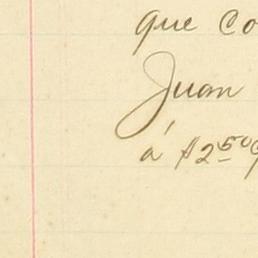 que co
Juan
á $2.50